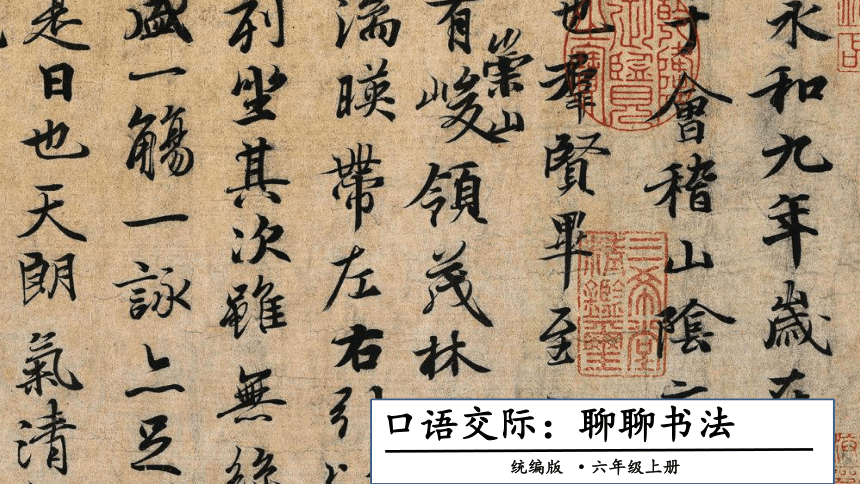 永和九年歲在
于會稽山陰之
也羣賢畢至
有崇山峻領茂林
湍暎帶左右引
列坐其次雖無絲
盛一觴一詠亦足
是日也天朗氣清
三希堂
精鑑璽
口语交际：聊聊书法
统编版 ·六年级上册